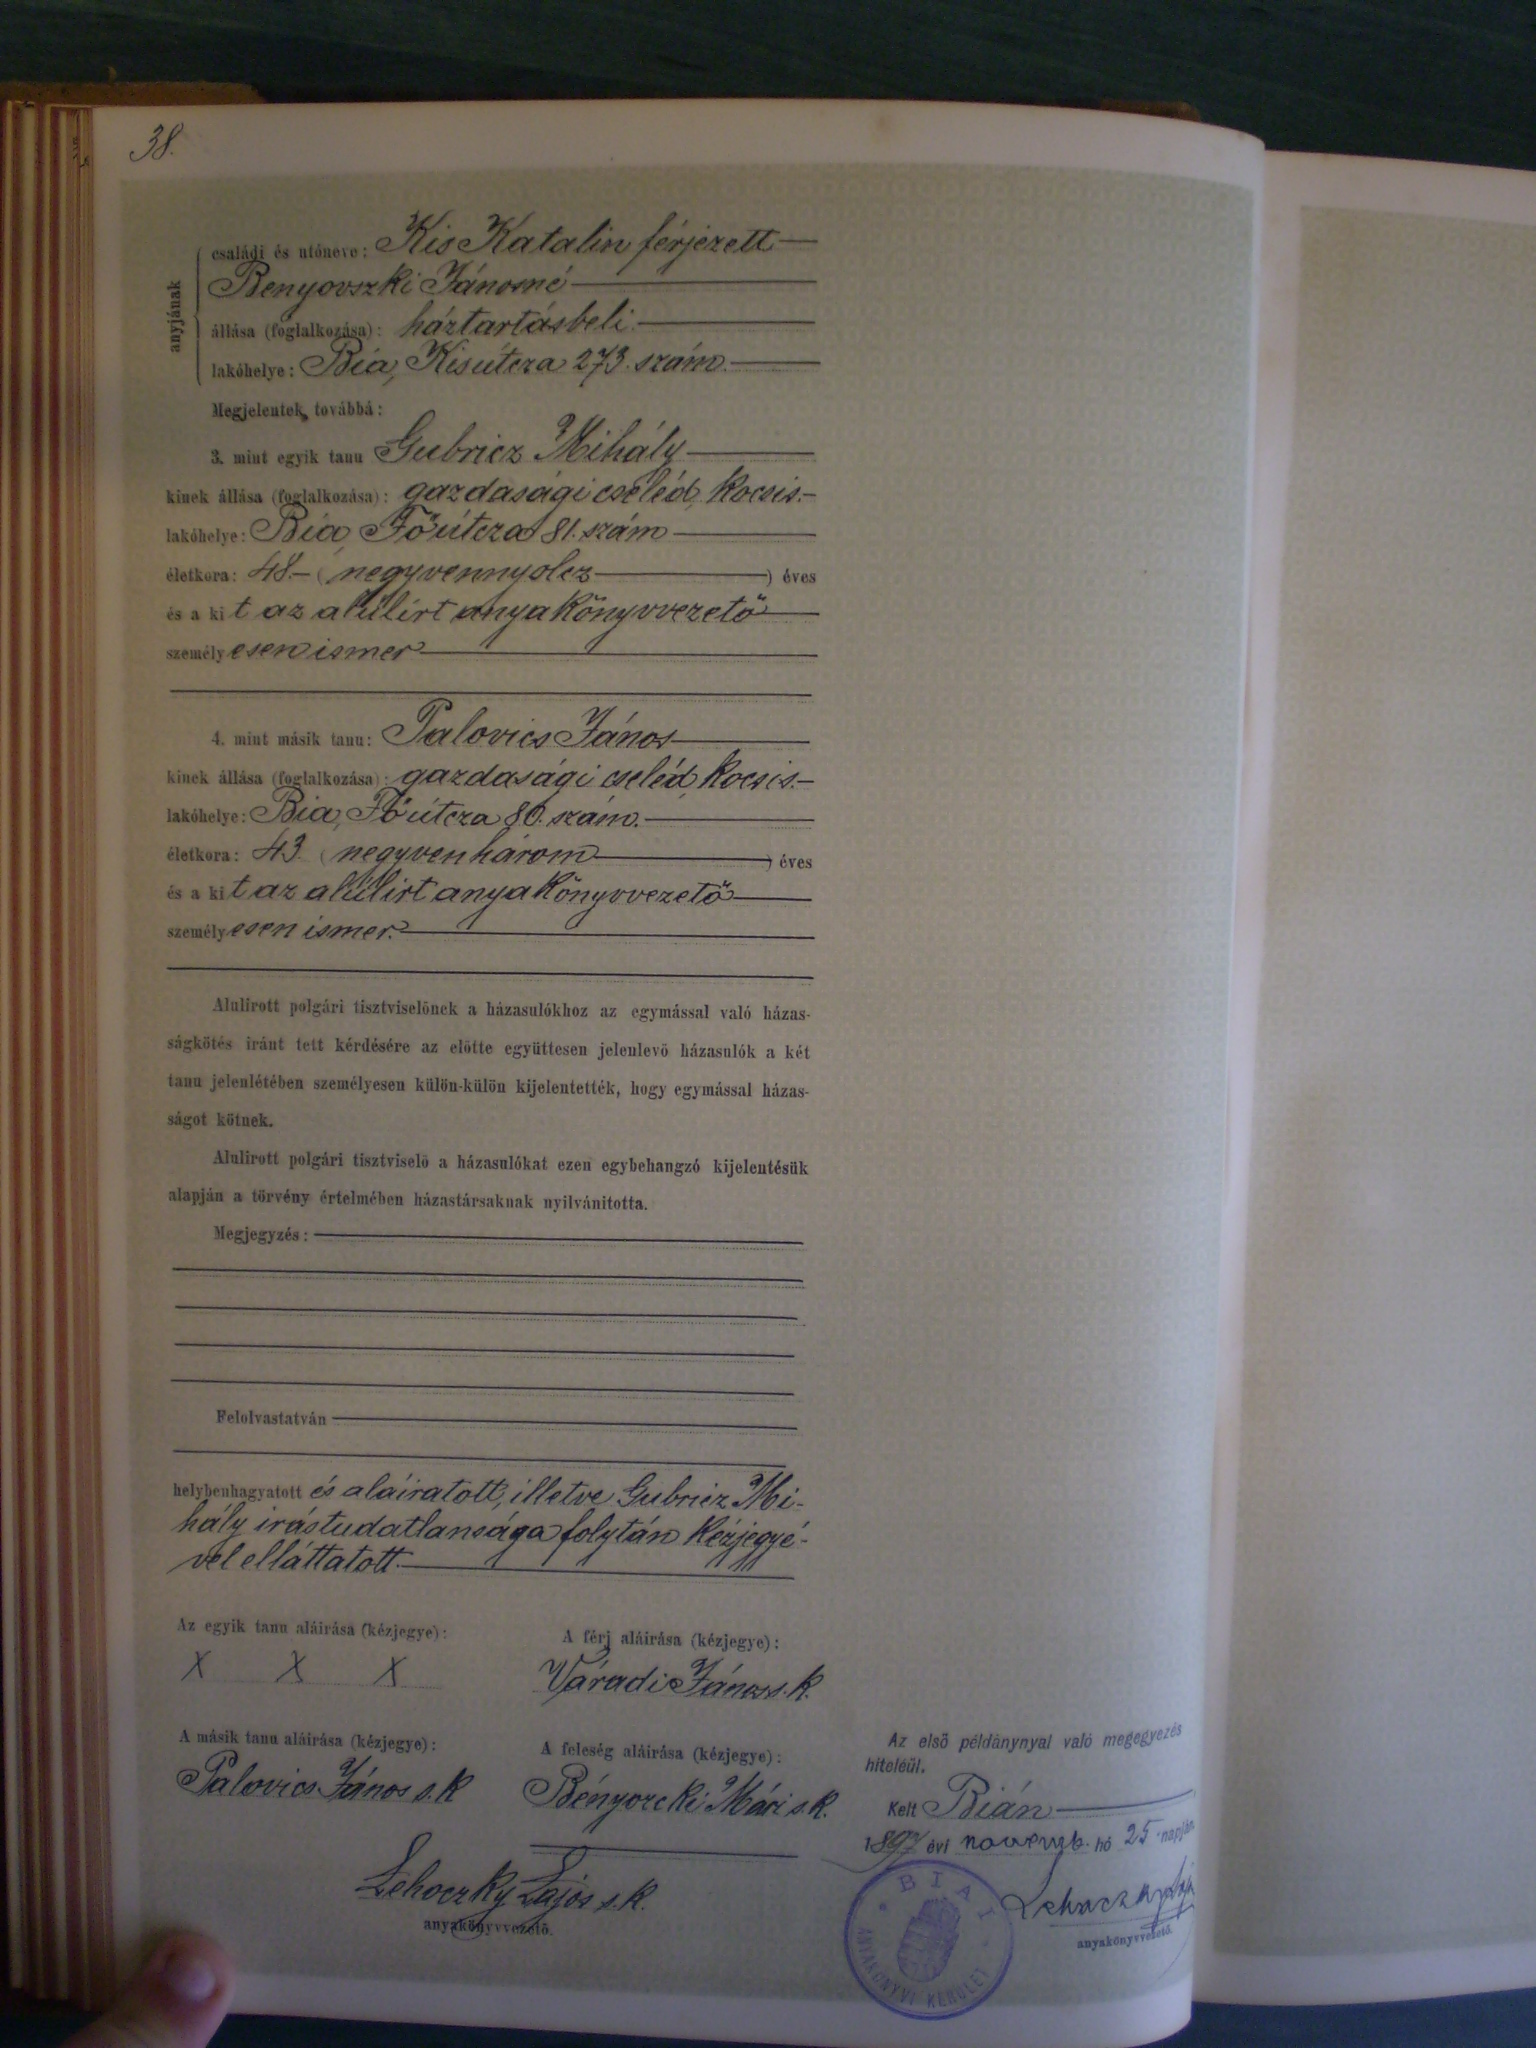 38.
anyjának
családi és utóneve: Kis Katalin férjezett
Benyovszki Jánosné
állása (foglalkozása): háztartásbeli.
lakóhelye: Bia, Kisútcza 273. szám.
Megjelentek, továbbá:
3. mint egyik tanu Gubricz Mihály
kinek állása (foglalkozása): gazdasági cseléd, kocsis.
lakóhelye: Bia, Főútcza 81. szám
életkora: 48.- (negyvennyolcz) éves
és a kit az alúlirt anyakönyvvezető
személyesen ismer
4. mint másik tanu: Palovics János
kinek állása (foglalkozása): gazdasági cseléd, kocsis.
lakóhelye: Bia, Főútcza 80. szám.
életkora: 43. (negyvenhárom) éves
és a kit az alúlirt anyakönyvvezető
személyesen ismer.
Alulirott polgári tisztviselőnek a házasulókhoz az egymással való házas-
ságkötés iránt tett kérdésére az előtte együttesen jelenlevő házasulók a két
tanu jelenlétében személyesen külön-külön kijelentették, hogy egymással házas-
ságot kötnek.
Alulirott polgári tisztviselő a házasulókat ezen egybehangzó kijelentésük
alapján a törvény értelmében házastársaknak nyilvánitotta.
Megjegyzés:
Felolvastatván
helybenhagyatott és aláiratott, illetve Gubricz Mi-
hály irástudatlansága folytán kézjegyé-
vel elláttatott.
Az egyik tanu aláirása (kézjegye):
X X X
A férj aláirása (kézjegye):
Váradi János s.k.
A másik tanu aláirása (kézjegye):
Palovics János s.k
A feleség aláirása (kézjegye):
Bényorcki Mári s.k.
Lehoczky Lajos s.k.
anyakönyvvezető.
Az első példánynyal való megegyezés
hiteléül.
Kelt Bián
1897 évi novemb. hó 25-napján
Lehoczky Lajos
anyakönyvvezető.
BIAI
ANYAKÖNYVI KERÜLET